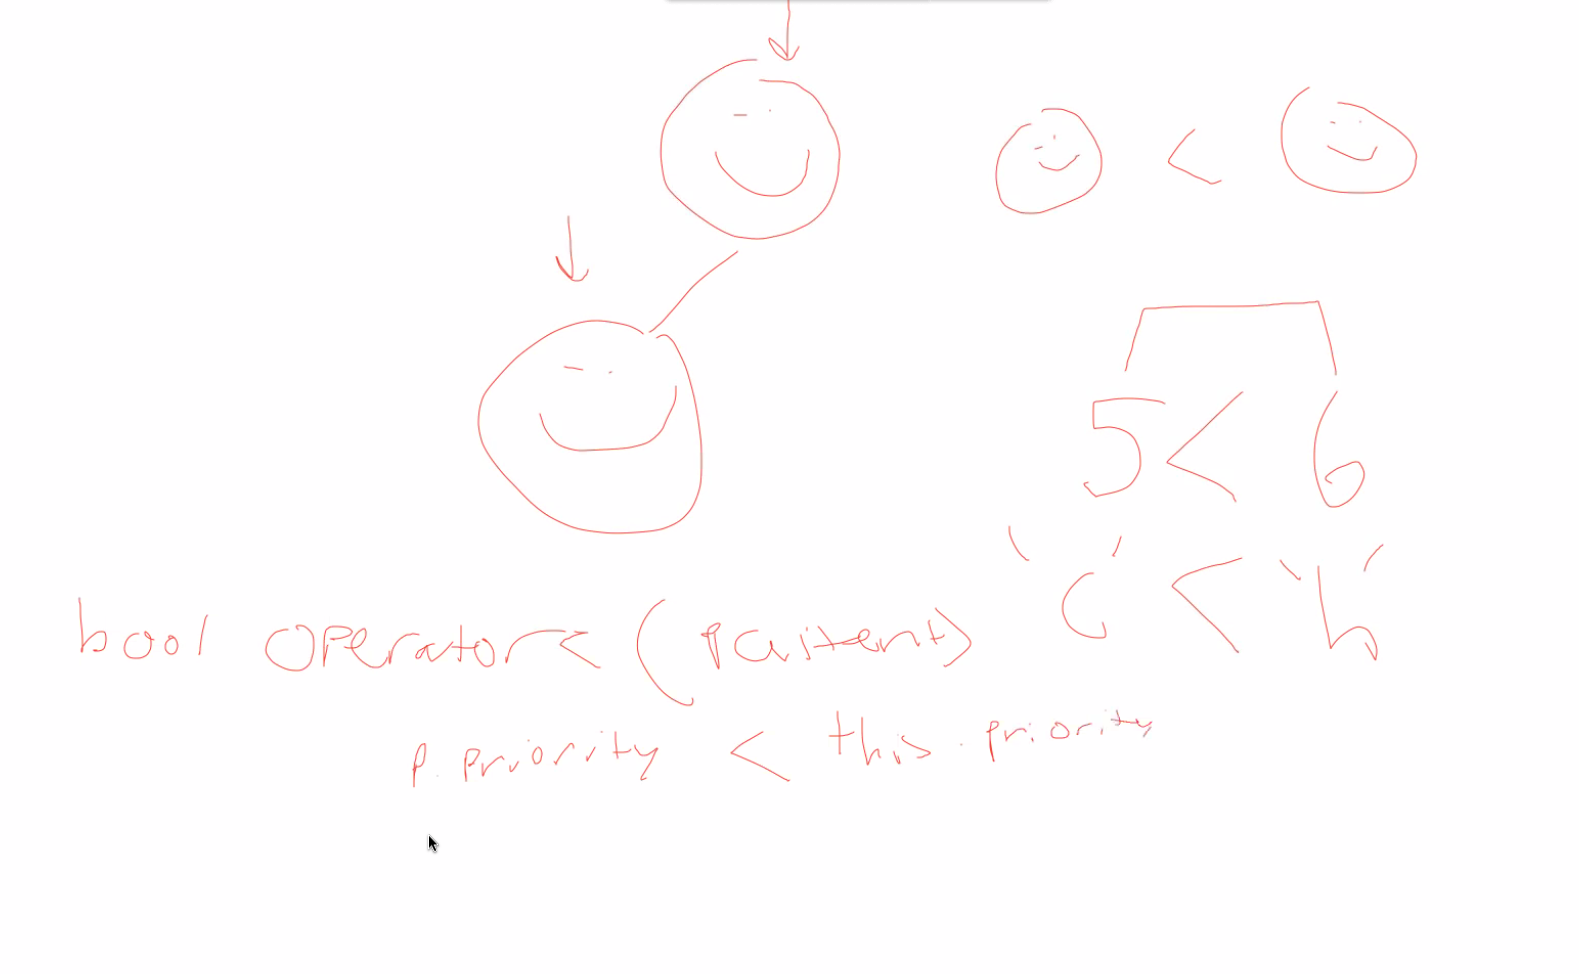 <
5 < 6
'c' < 'h'
bool operator< (paitent)
p.priority < this.priority